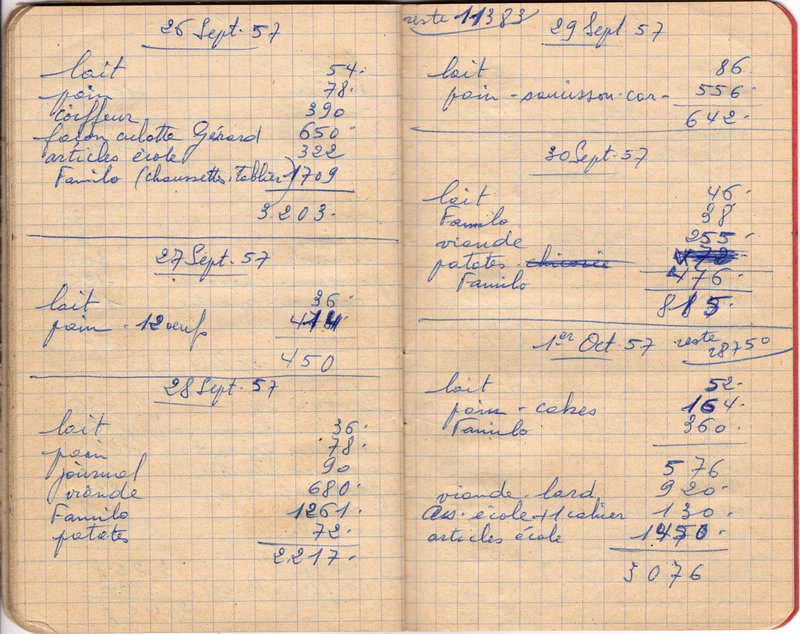 26 Sept. 57
lait 54.
pain 78.
coiffeur 390
façon culotte Gérard 650.
articles école 322
Familo (chaussettes, tablier) 1709
3.203.
27 Sept. 57
lait 36.
pain - 12 oeufs 414
450
28 Sept. 57
lait 36.
pain 78.
journal 90
viande 680.
Familo 1261.
patates 72.
2.217.
reste 11383
29 Sept 57
lait 86
pain - saucisson - car - 556.
642.
30 Sept. 57
lait 46.
Familo 38.
viande 255
patates - chicorée 472
Familo 476.
815.
1er Oct. 57
reste 28750
lait 52.
pain - cakes 164.
Familo 360.
576
viande - lard 920.
Ass. école + 1 cahier 130.
articles école 1450.
3076